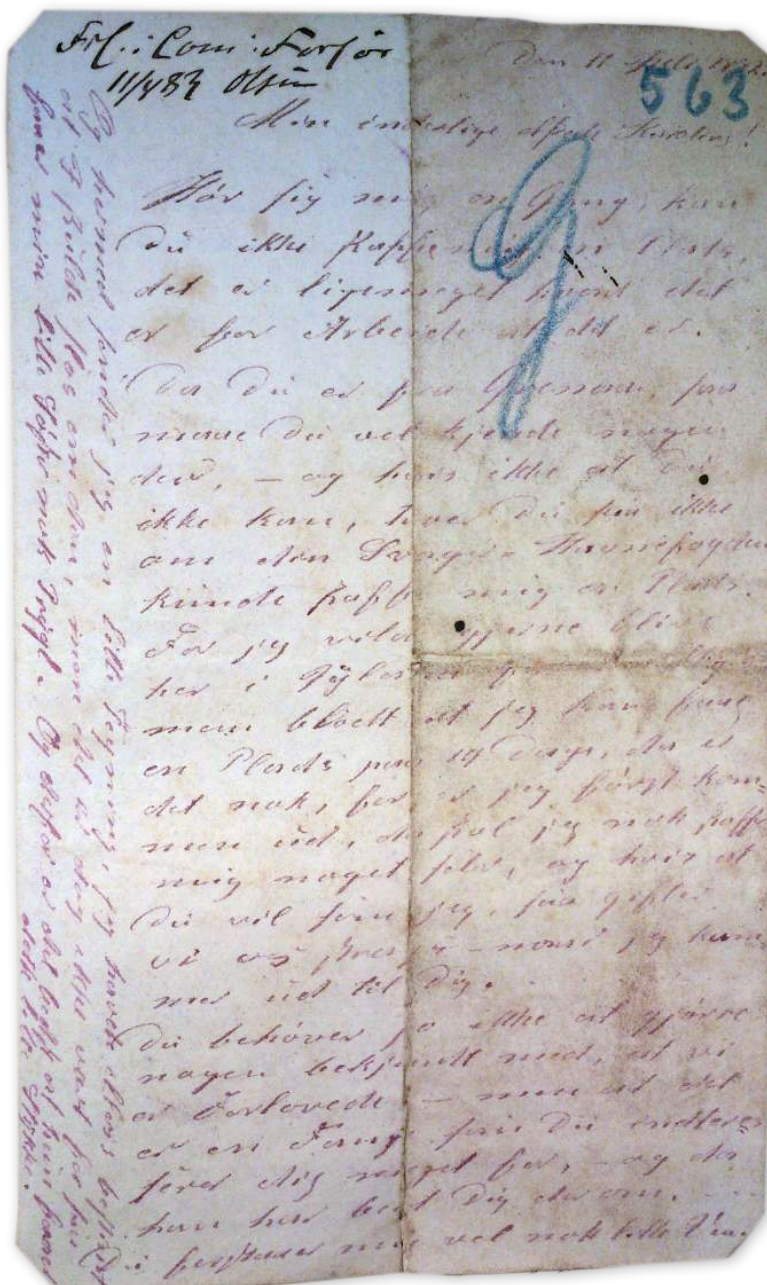 Frl. i Com: Forhör
11/7 83 Olsen
563
Den 11 Juli
Min inderlige elskede Karoline!
Hör sig mig en Gang, kan
Du ikke skaffe mig en Plads,
det er ligemeget hvad det
er for Arbeide at det er.
Da Du er fra saa
maae Du vel kjende nogen
der, – og hvis ikke at Du
ikke kan, troer Du saa ikke
om den Havnefogden
kunde skaffe mig en Plads.
For jeg vilde gjerne blive
her i
men blodt at jeg kan faae
en Plads paa 14 Dage, da er
det nok, for er jeg först kom=
men ud, da skal jeg nok skaffe
mig noget selv, og hvis at
Du vil som jeg, saa gifte
vi os strax – naar jeg kom
mer ud til Dig.
Du behöver jo ikke at gjöre
nogen bekjendt med, at vi
er Forlovede – men at det
er en Fange som Du
Dig meget for, – og da
han har bedt Dig derom.
Du forstaaer mig vel nok lille Ven.
Og hermed sender jeg en lille Tegning, jeg havde ellers
at I skulde slaas om den, men det er dog ikke værd, for saa
faaer min lille Og derfor er det bedst at hun faaer
dette lille Stykke.